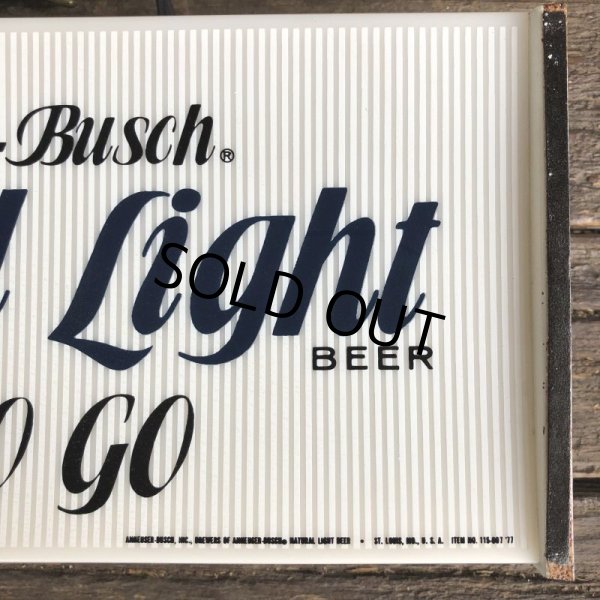 -Busch®
l Light
BEER
O GO
ANHEUSER-BUSCH, INC., BREWERS OF ANHEUSER-BUSCH® NATURAL LIGHT BEER • ST. LOUIS, MO., U. S. A. ITEM NO. 115-007 '77
SOLD OUT